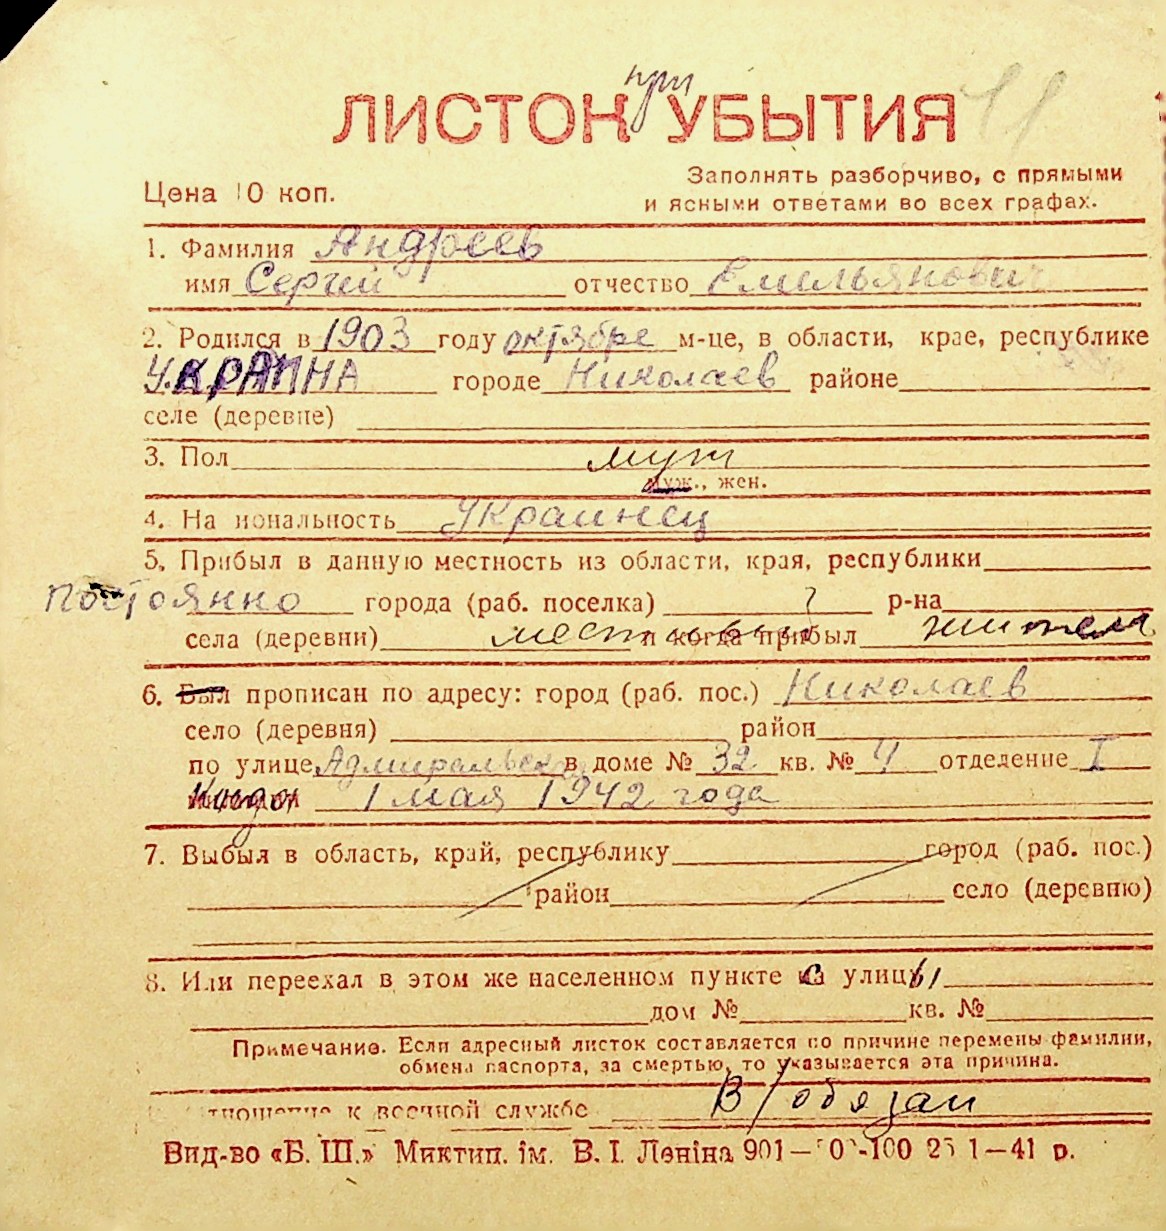 при
ЛИСТОК УБЫТИЯ 11
Заполнять разборчиво, с прямыми
Цена 10 коп.
и ясными ответами во всех графах.
1. Фамилия Андреев
имя Сергей отчество Емильянович
2. Родился в 1903 году октябре м-це, в области, крае, республике
УКРАИНА городе Николаев районе
селе (деревне)
3. Пол муж
муж., жен.
4. На иональность Украинец
5. Прибыл в данную местность из области, края, республики
постоянно города (раб. поселка) р-на
села (деревни) местный и когда прибыл житель
6. Был прописан по адресу: город (раб. пос.) Николаев
село (деревня) район
по улице Адмиральск в доме № 32 кв. № 4 отделение I
Когда 1 мая 1942 года
7. Выбыл в область, край, республику город (раб. пос.)
район село (деревню)
8. Или переехал в этом же населенном пункте с улицы
дом № кв. №
Примечание. Если адресный листок составляется по причине перемены фамилии,
обмена паспорта, за смертью, то указывается эта причина.
тношение к военной службе В/обязан
Вид-во «Б. Ш.» Миктип. ім. В. І. Леніна 901— 0 -100 25 1—41 р.